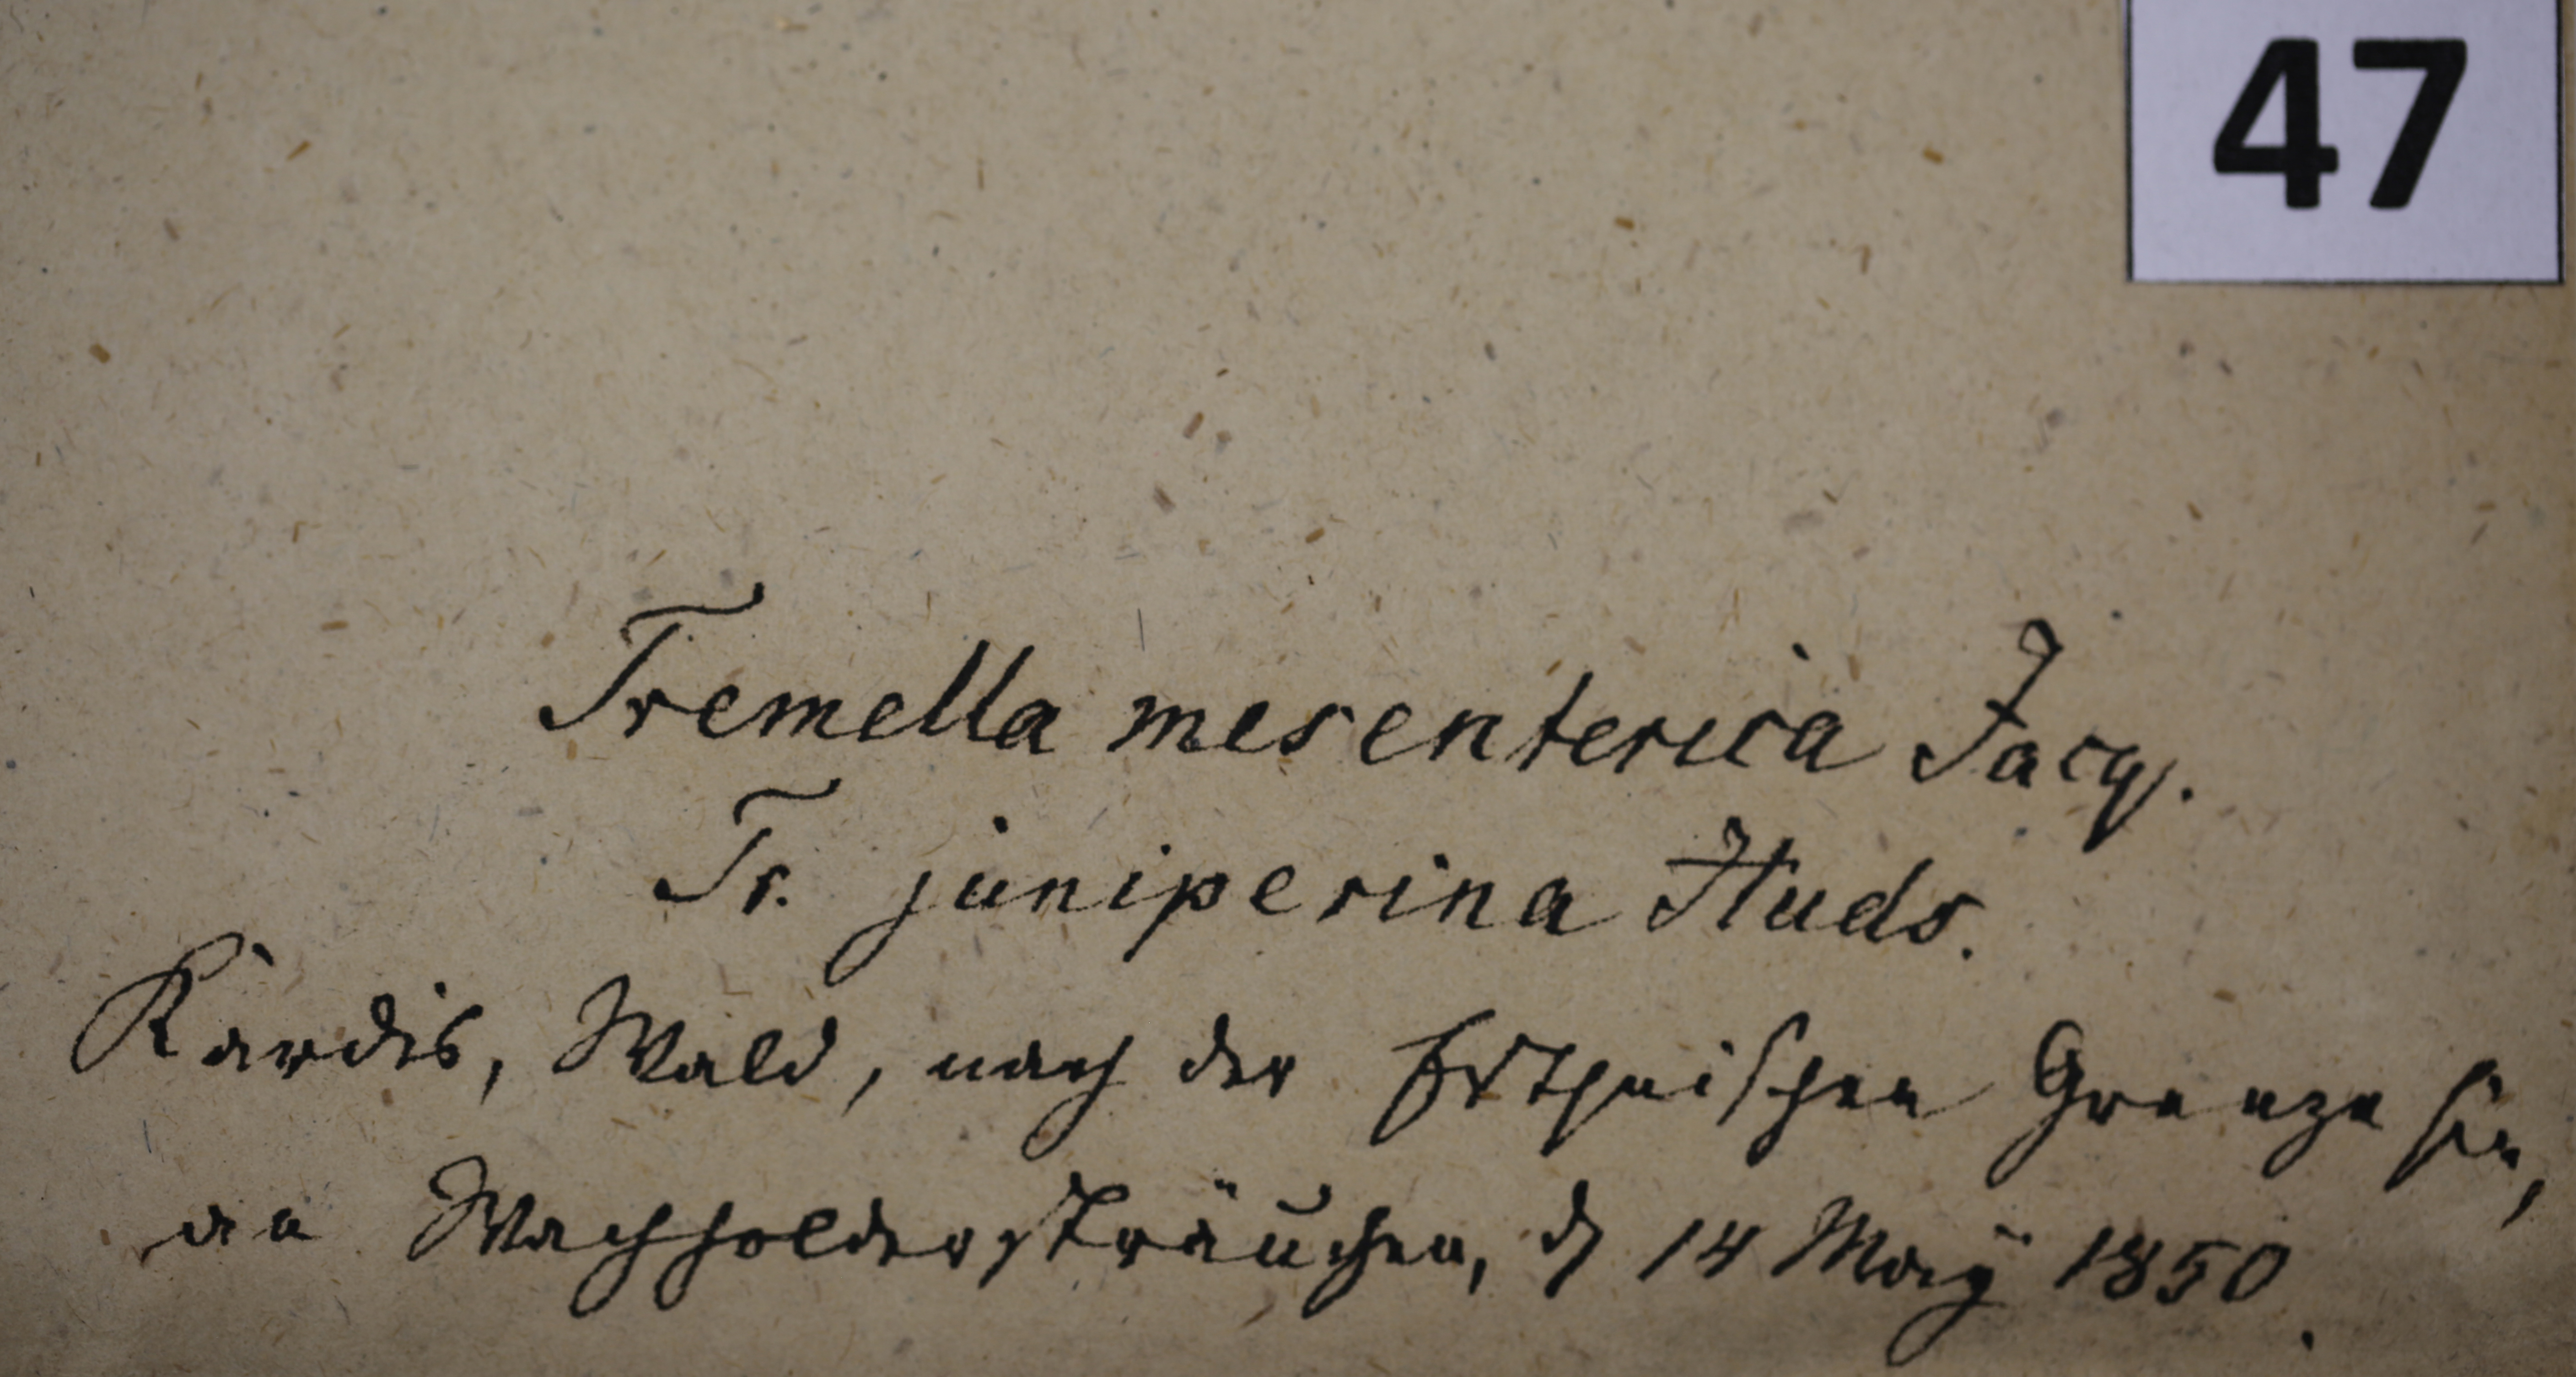 47
Tremella mesenterica Jacq.
Tr. juniperina Huds.
Kardis, Wald, nach der Esthnischen Grenze hin,
an Wachholdersträuchen, d 14 May 1850.